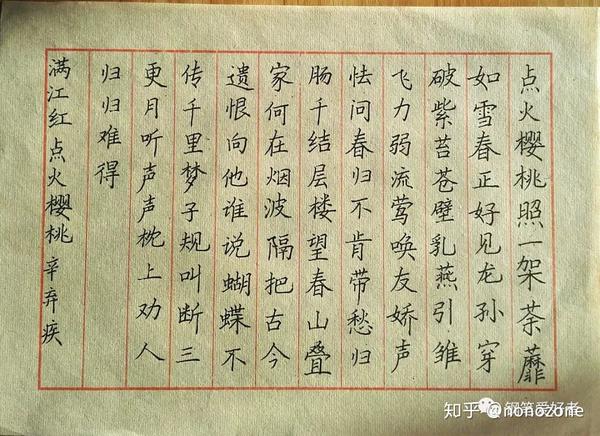 点火樱桃照一架荼蘼
如雪春正好见龙孙穿
破紫苔苍壁乳燕引雏
飞力弱流莺唤友娇声
怯问春归不肯带愁归
肠千结层楼望春山叠
家何在烟波隔把古今
遗恨向他谁说蝴蝶不
传千里梦子规叫断三
更月听声声枕上劝人
归归难得
满江红点火樱桃 辛弃疾
钢笔爱好者
知乎 @nonozone